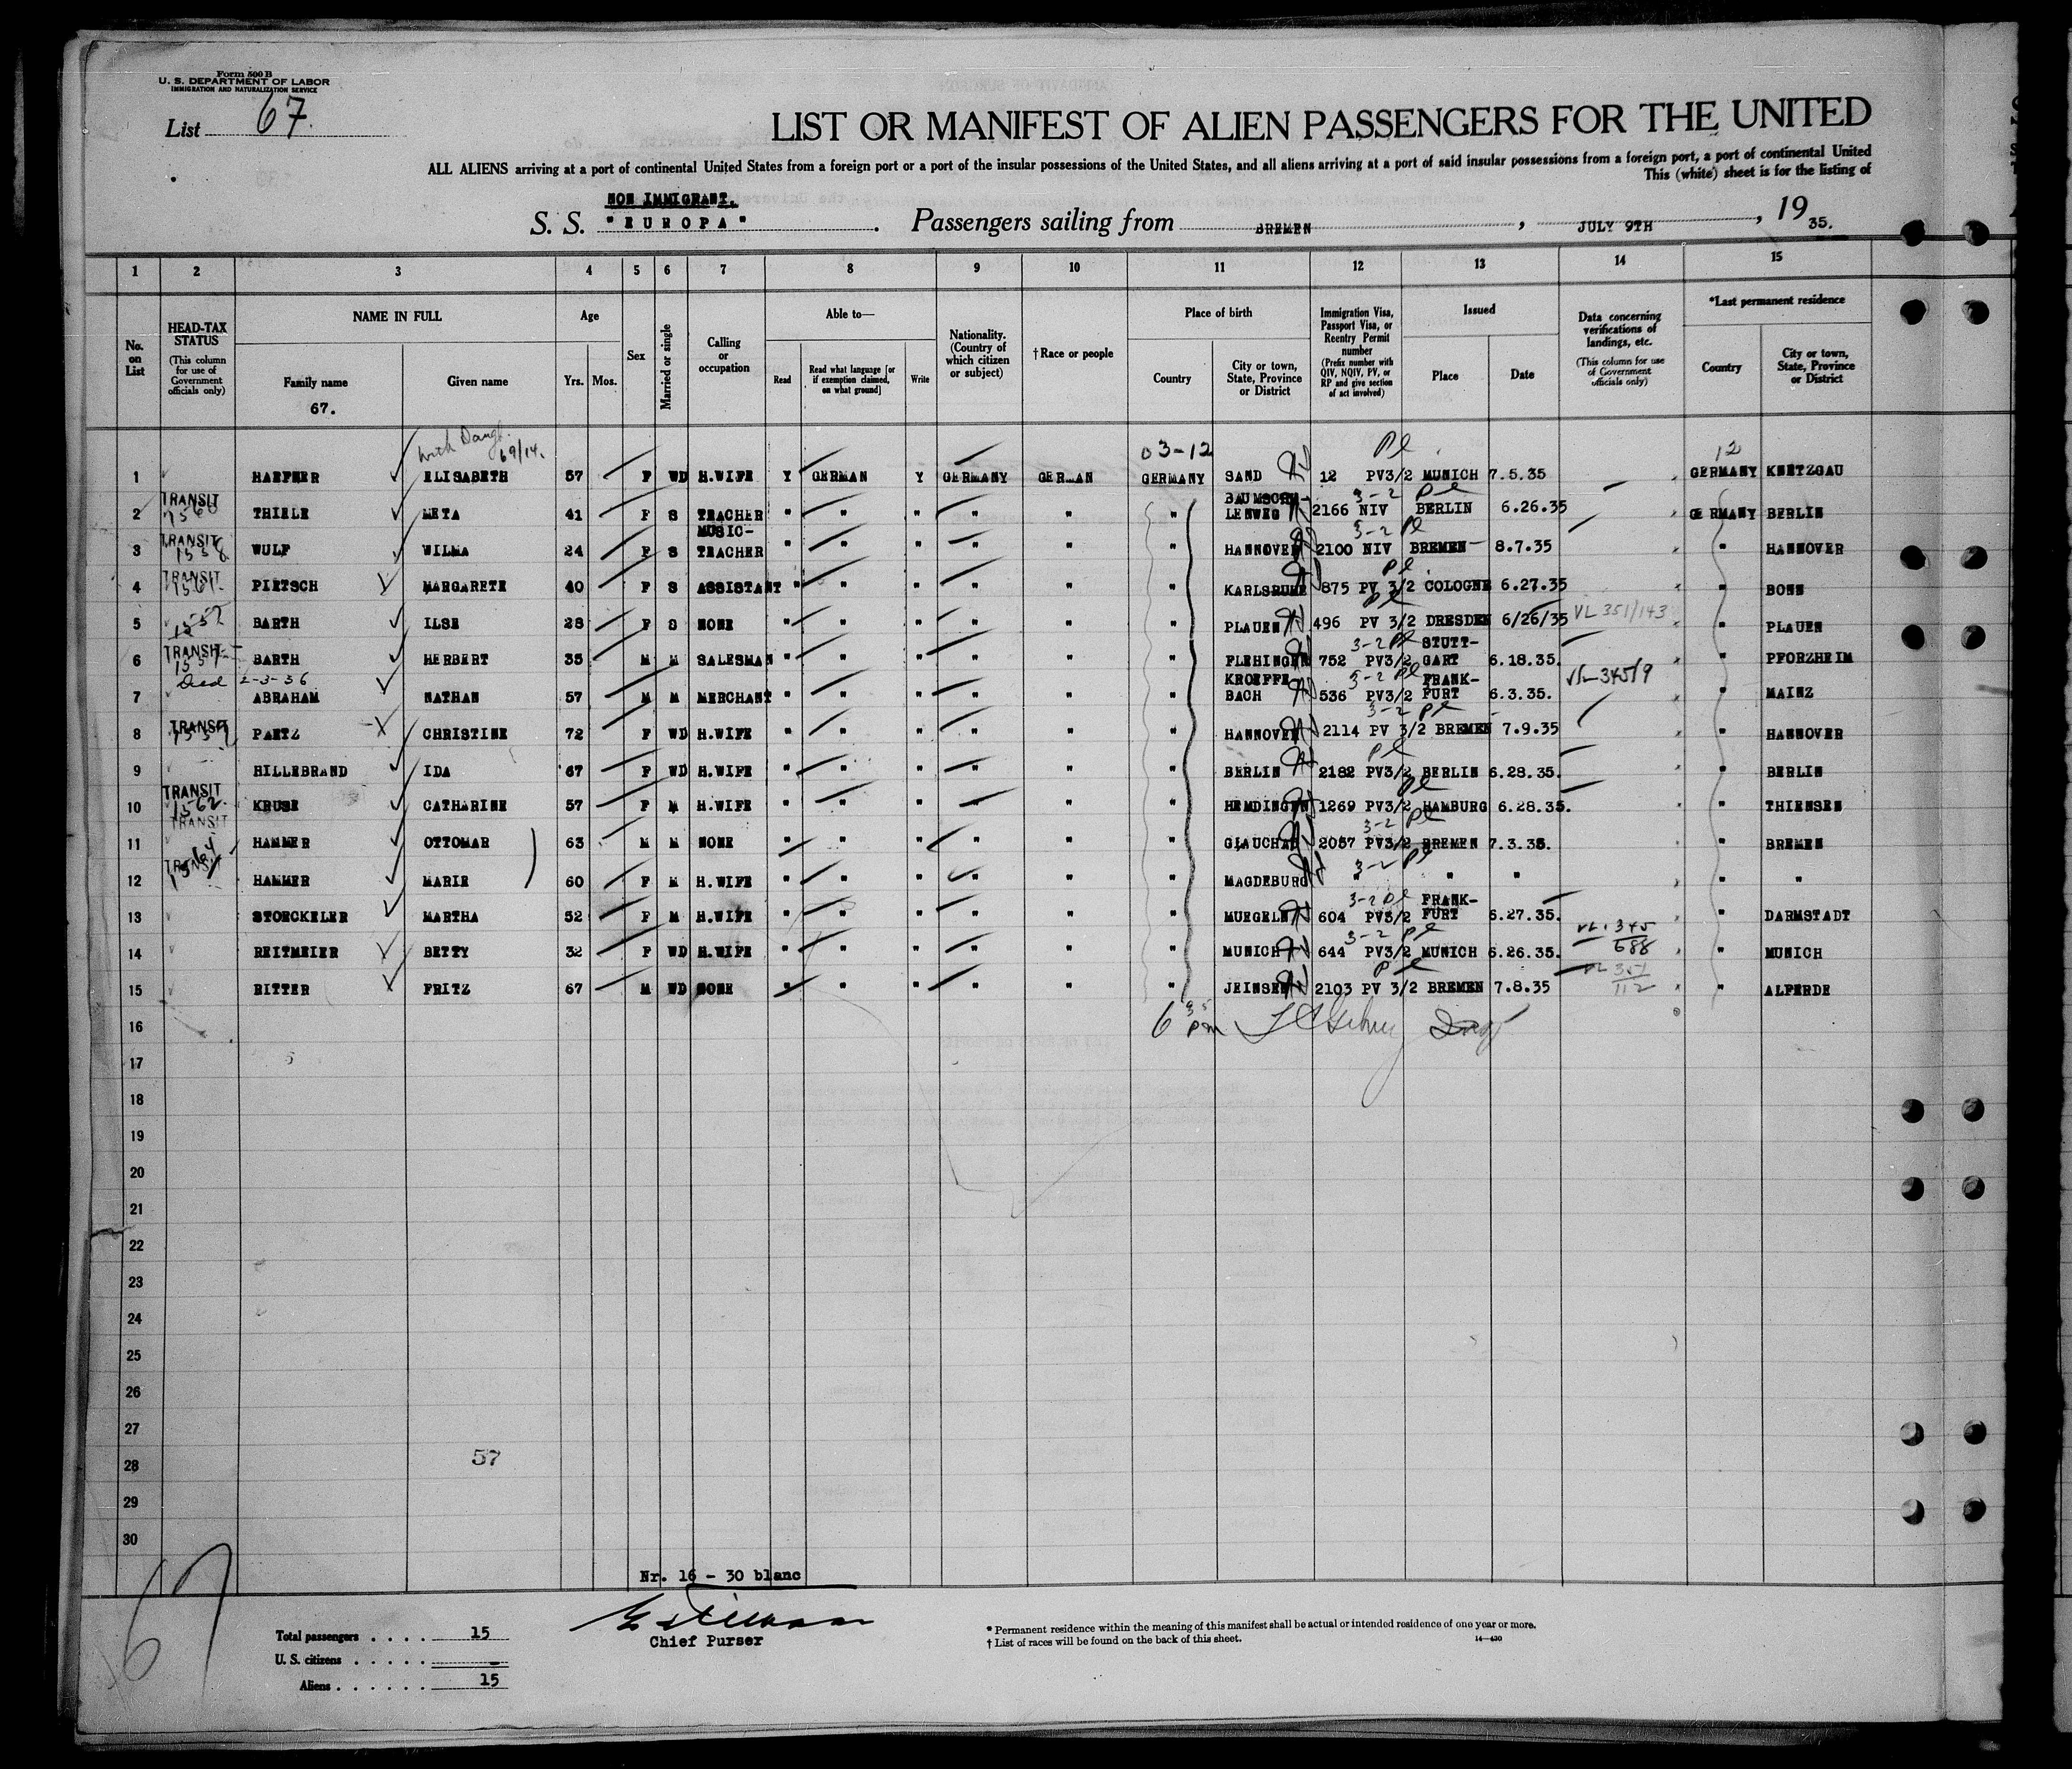 Form 500 B
U. S. DEPARTMENT OF LABOR
IMMIGRATION AND NATURALIZATION SERVICE
List 67.
LIST OR MANIFEST OF ALIEN PASSENGERS FOR THE UNITED
ALL ALIENS arriving at a port of continental United States from a foreign port or a port of the insular possessions of the United States, and all aliens arriving at a port of said insular possessions from a foreign port, a port of continental United
This (white) sheet is for the listing of
NON IMMIGRANT.
S. S. "EUROPA". Passengers sailing from BREMEN, JULY 9TH, 1935.
1 2 3 4 5 6 7 8 9 10 11 12 13 14 15
No. on List
HEAD-TAX STATUS (This column for use of Government officials only)
NAME IN FULL
Family name
67.
Given name
Age
Yrs. Mos.
Sex
Married or single
Calling or occupation
Able to—
Read
Read what language [or if exemption claimed, on what ground]
Write
Nationality. (Country of which citizen or subject)
†Race or people
Place of birth
Country
City or town, State, Province or District
Immigration Visa, Passport Visa, or Reentry Permit number (Prefix number with QIV, NQIV, PV, or RP and give section of act involved)
Issued
Place
Date
Data concerning verifications of landings, etc. (This column for use of Government officials only)
*Last permanent residence
Country
City or town, State, Province or District
with Daugt. 69/14.
03-12 Pl 12
1 HAEFNER ELISABETH 57 F WD H.WIFE Y GERMAN Y GERMANY GERMAN GERMANY SAND 12 PV3/2 MUNICH 7.5.35 GERMANY KNETZGAU
2 TRANSIT 1560 THIELE META 41 F S TEACHER " " " " " " BAUMSCHU-LENWEG 2166 NIV 3-2 Pl BERLIN 6.26.35 GERMANY BERLIN
3 TRANSIT 1558 WULF WILMA 24 F S MUSIC-TEACHER " " " " " " HANNOVER 2100 NIV 3-2 Pl BREMEN 8.7.35 " HANNOVER
4 TRANSIT 1561 PIETSCH MARGARETE 40 F S ASSISTANT " " " " " " KARLSRUHE 875 PV 3/2 Pl COLOGNE 6.27.35 " BONN
5 BARTH ILSE 28 F S NONE " " " " " " PLAUEN 496 PV 3/2 Pl DRESDEN 6/26/35 VL 351/143 " PLAUEN
6 TRANSIT BARTH HERBERT 35 M M SALESMAN " " " " " " FLEHINGEN 752 PV3/2 3-2 Pl STUTT-GART 6.18.35. " PFORZHEIM
Died 2-3-36
7 ABRAHAM NATHAN 57 M M MERCHANT " " " " " " KROEFFEBACH 536 PV3/2 3-2 Pl FRANK-FURT 6.3.35. VL-345/9 " MAINZ
8 TRANSIT PAETZ CHRISTINE 72 F WD H.WIFE " " " " " " HANNOVER 2114 PV 3/2 3-2 Pl BREMEN 7.9.35 " HANNOVER
9 HILLEBRAND IDA 67 F WD H.WIFE " " " " " " BERLIN 2182 PV3/2 Pl BERLIN 6.28.35. " BERLIN
10 TRANSIT 1562. KRUSE CATHARINE 57 F M H.WIFE " " " " " " HEMDINGEN 1269 PV3/2 Pl HAMBURG 6.28.35. " THIENSEN
11 TRANSIT HAMMER OTTOMAR 63 M M NONE " " " " " " GLAUCHAU 2057 PV3/2 3-2 Pl BREMEN 7.3.35. " BREMEN
12 TRANSIT HAMMER MARIE 60 F M H.WIFE " " " " " " MAGDEBURG " 3-2 Pl " " " "
13 STOECKELER MARTHA 52 F M H.WIFE " " " " " " MUEGELN 604 PV3/2 3-2 Pl FRANK-FURT 6.27.35. " DARMSTADT
14 REITMEIER BETTY 32 F WD H.WIFE " " " " " " MUNICH 644 PV3/2 3-2 Pl MUNICH 6.26.35. VL. 345/688 " MUNICH
15 RITTER FRITZ 67 M WD NONE " " " " " " JEINSEN 2103 PV 3/2 Pl BREMEN 7.8.35 VL 351/112 " ALFERDE
16 6 35 pm
17
18
19
20
21
22
23
24
25
26
27
28 57
29
30
Nr. 16 - 30 blanc
67
Chief Purser
Total passengers . . . . 15
U. S. citizens . . . . . –
Aliens . . . . . . 15
* Permanent residence within the meaning of this manifest shall be actual or intended residence of one year or more.
† List of races will be found on the back of this sheet.
14—430